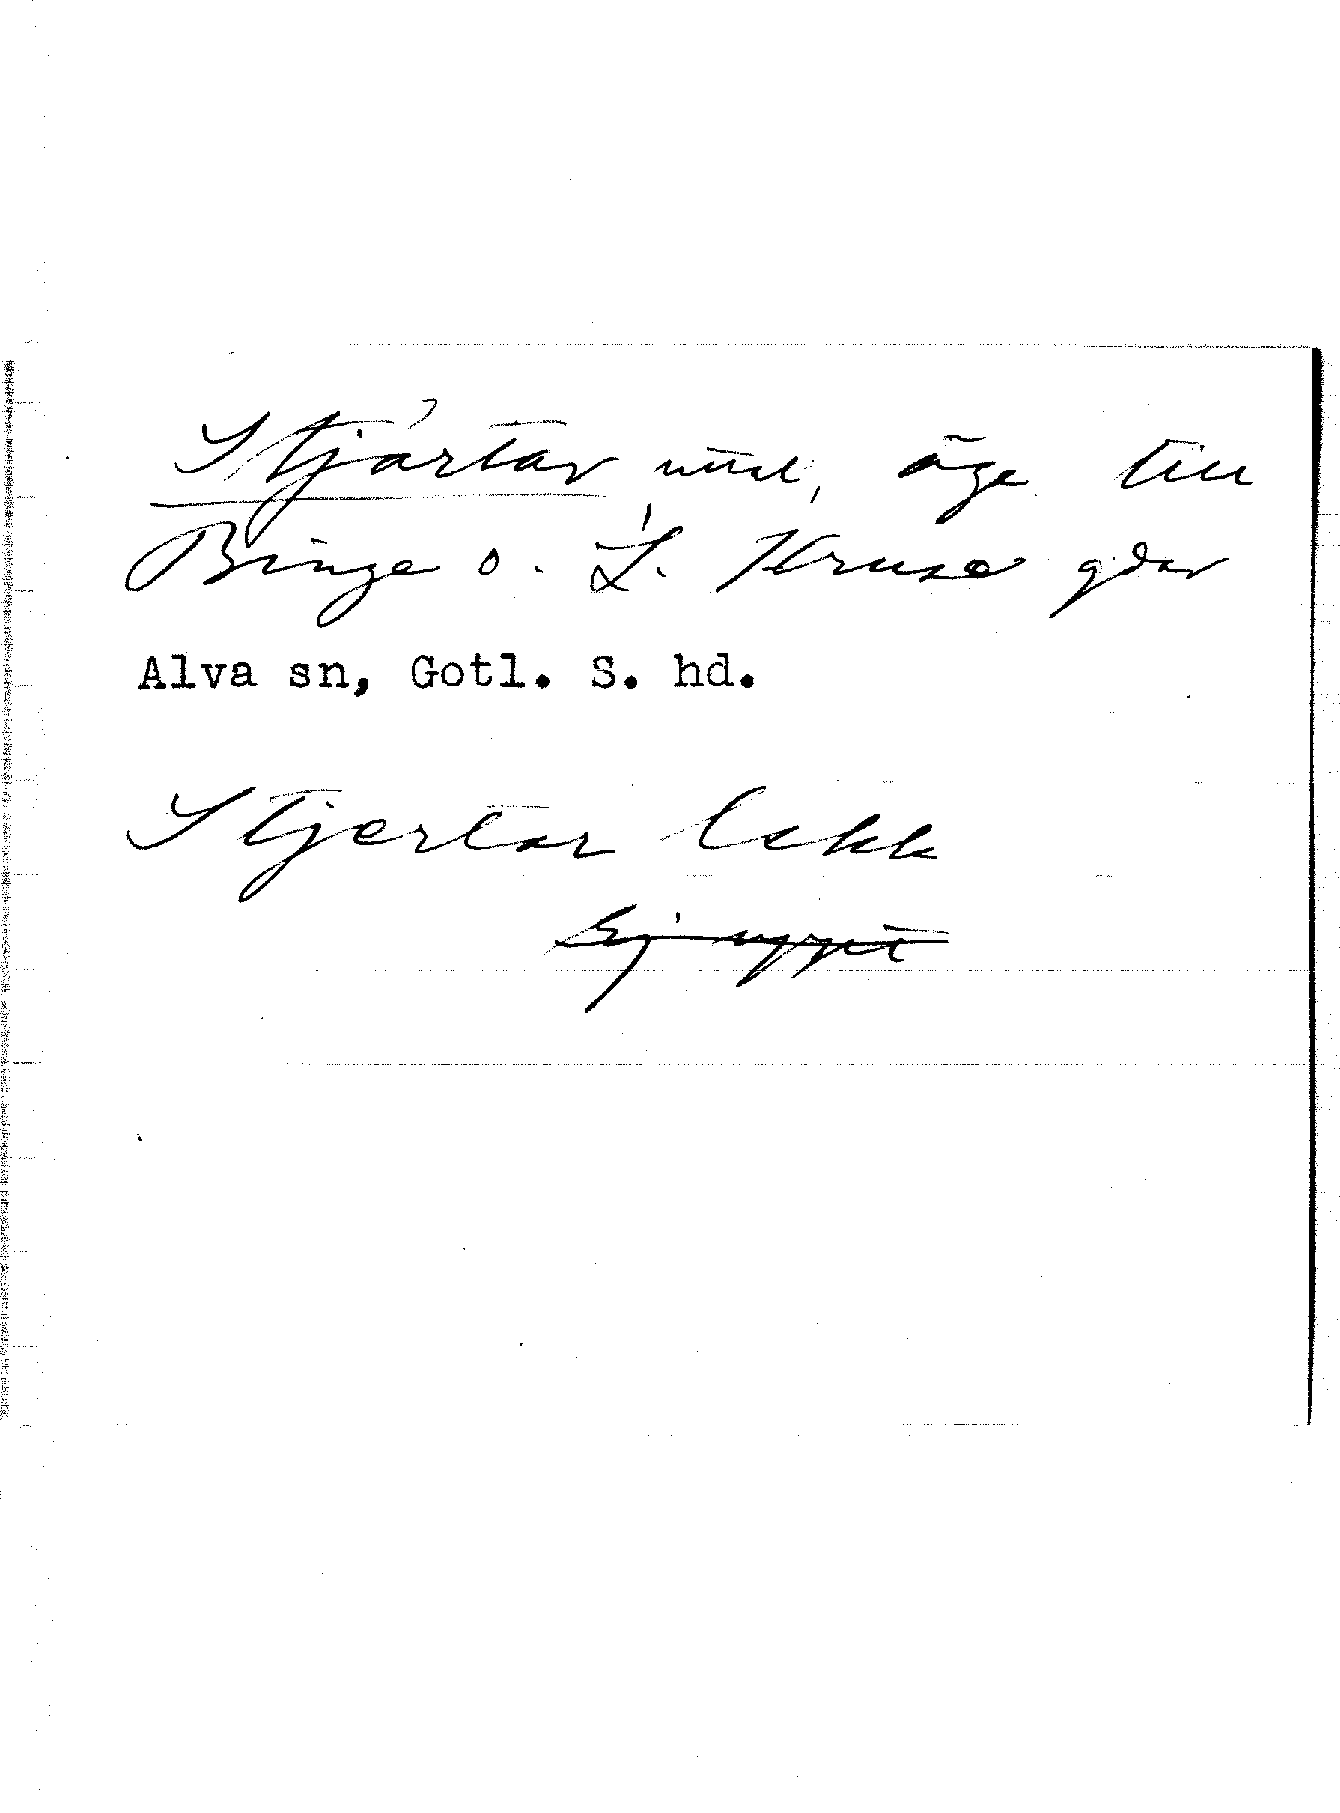 Stjärtar utsl, äge till
Binge o. L. Kruse gdar
Alva sn, Gotl. S. hd.
Stjertar
Ej uppt